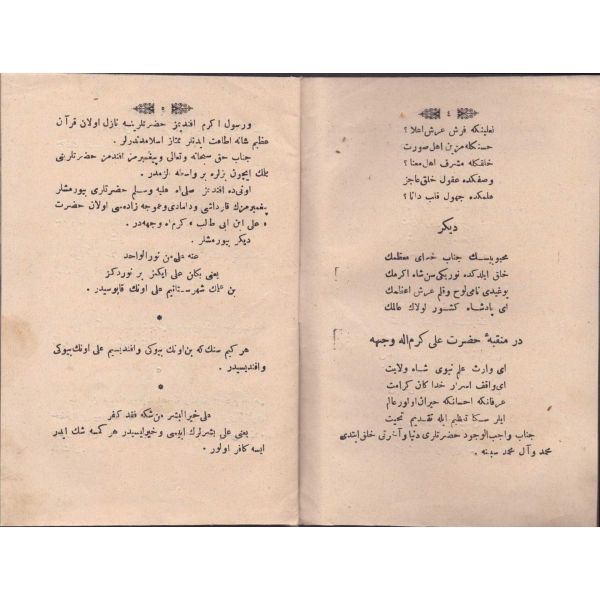 ٤
نعلینکه فرش عرش اعلا؟
حسنکله مزین اهل صورت
خلقکله مشرف اهل معنا؟
وصفکده عقول خلق عاجز
علمکده جهول قلب دانا؟
دیکر
محبوبیسك جناب خدای معظمك
خلق ایلدکده نوریکی سن شاه اکرمك
یوغیدی نامی لوح و قلم عرش اعظمك
ای پادشاه کشور لولاك عالمك
در منقبهٔ حضرت علی کرم الله وجهه
ای وارث علم نبوی شاه ولایت
ای واقف اسرار خدا کان کرامت
عرفانکه احسانکه حیران اولور عالم
ایلر سکا تنظیم ایله تقدیم تحیت
جناب واجب الوجود حضرتلری دنیا و آخرتی خلق ایتدی
محمد و آل محمد سینه.
٥
ورسول اکرم افندمز حضرتلرینه نازل اولان قرآن
عظیم شانه اطاعت ایدنلر ممتاز اسلامدندرلر
جناب حق سبحانه وتعالی و پیغمبرمز افندمز حضرتلرینی
بیلمك ایچون بزلره بر واسطه لازمدر.
اونی ده افندمز صلی الله علیه وسلم حضرتلری بیورمشلر
پیغمبرمزك قارداشی ودامادی وعموجه زاده سی اولان حضرت
«علی ابن ابی طالب» کرم الله وجهه در.
دیکر بیورمشلر.
عنه علی من نور الواحد
یعنی بنمله علی ایکمز بر نوردنکز
بن علمك شهرستانیم علی اونك قاپوسیدر.
*
هر کیم سنك که بن اونك بیوکی و افندیسیم علی اونك بیوکی
و افندیسیدر.
*
علی خیرالبشر من شکه فقد کفر
یعنی علی بشرلرك ایوسی و خیرلیسیدر هر کمسه شك ایدر
ایسه کافر اولور.